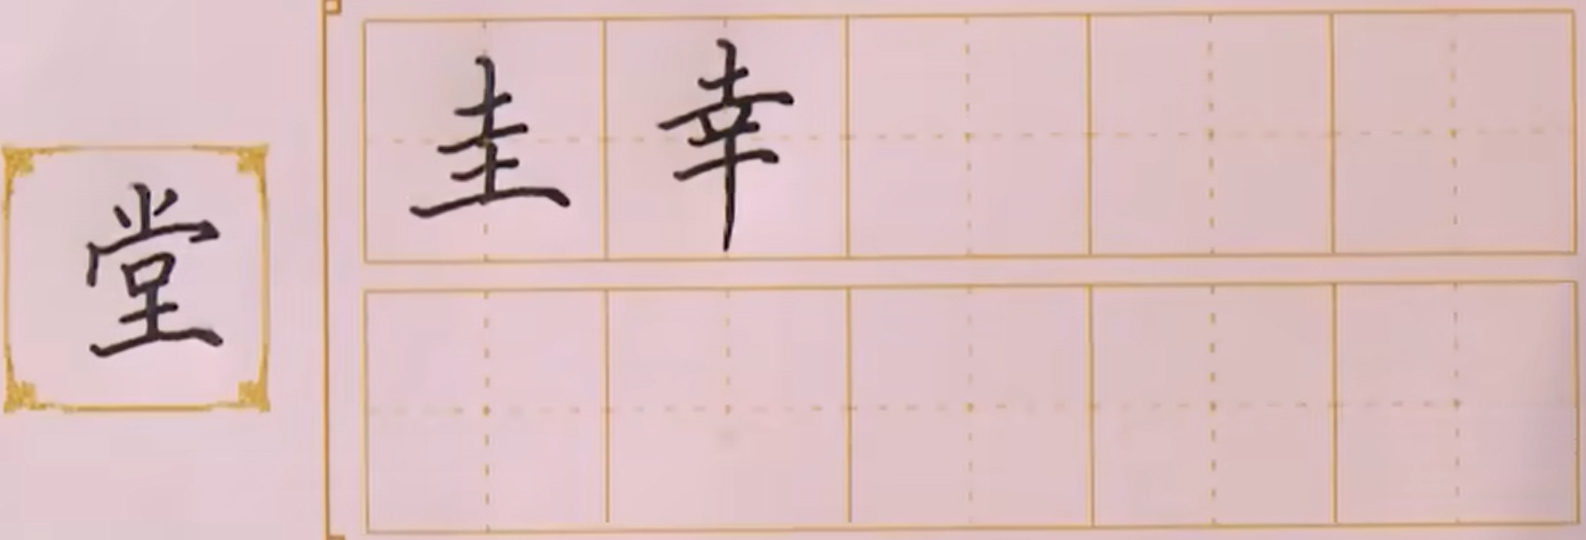 堂
圭幸